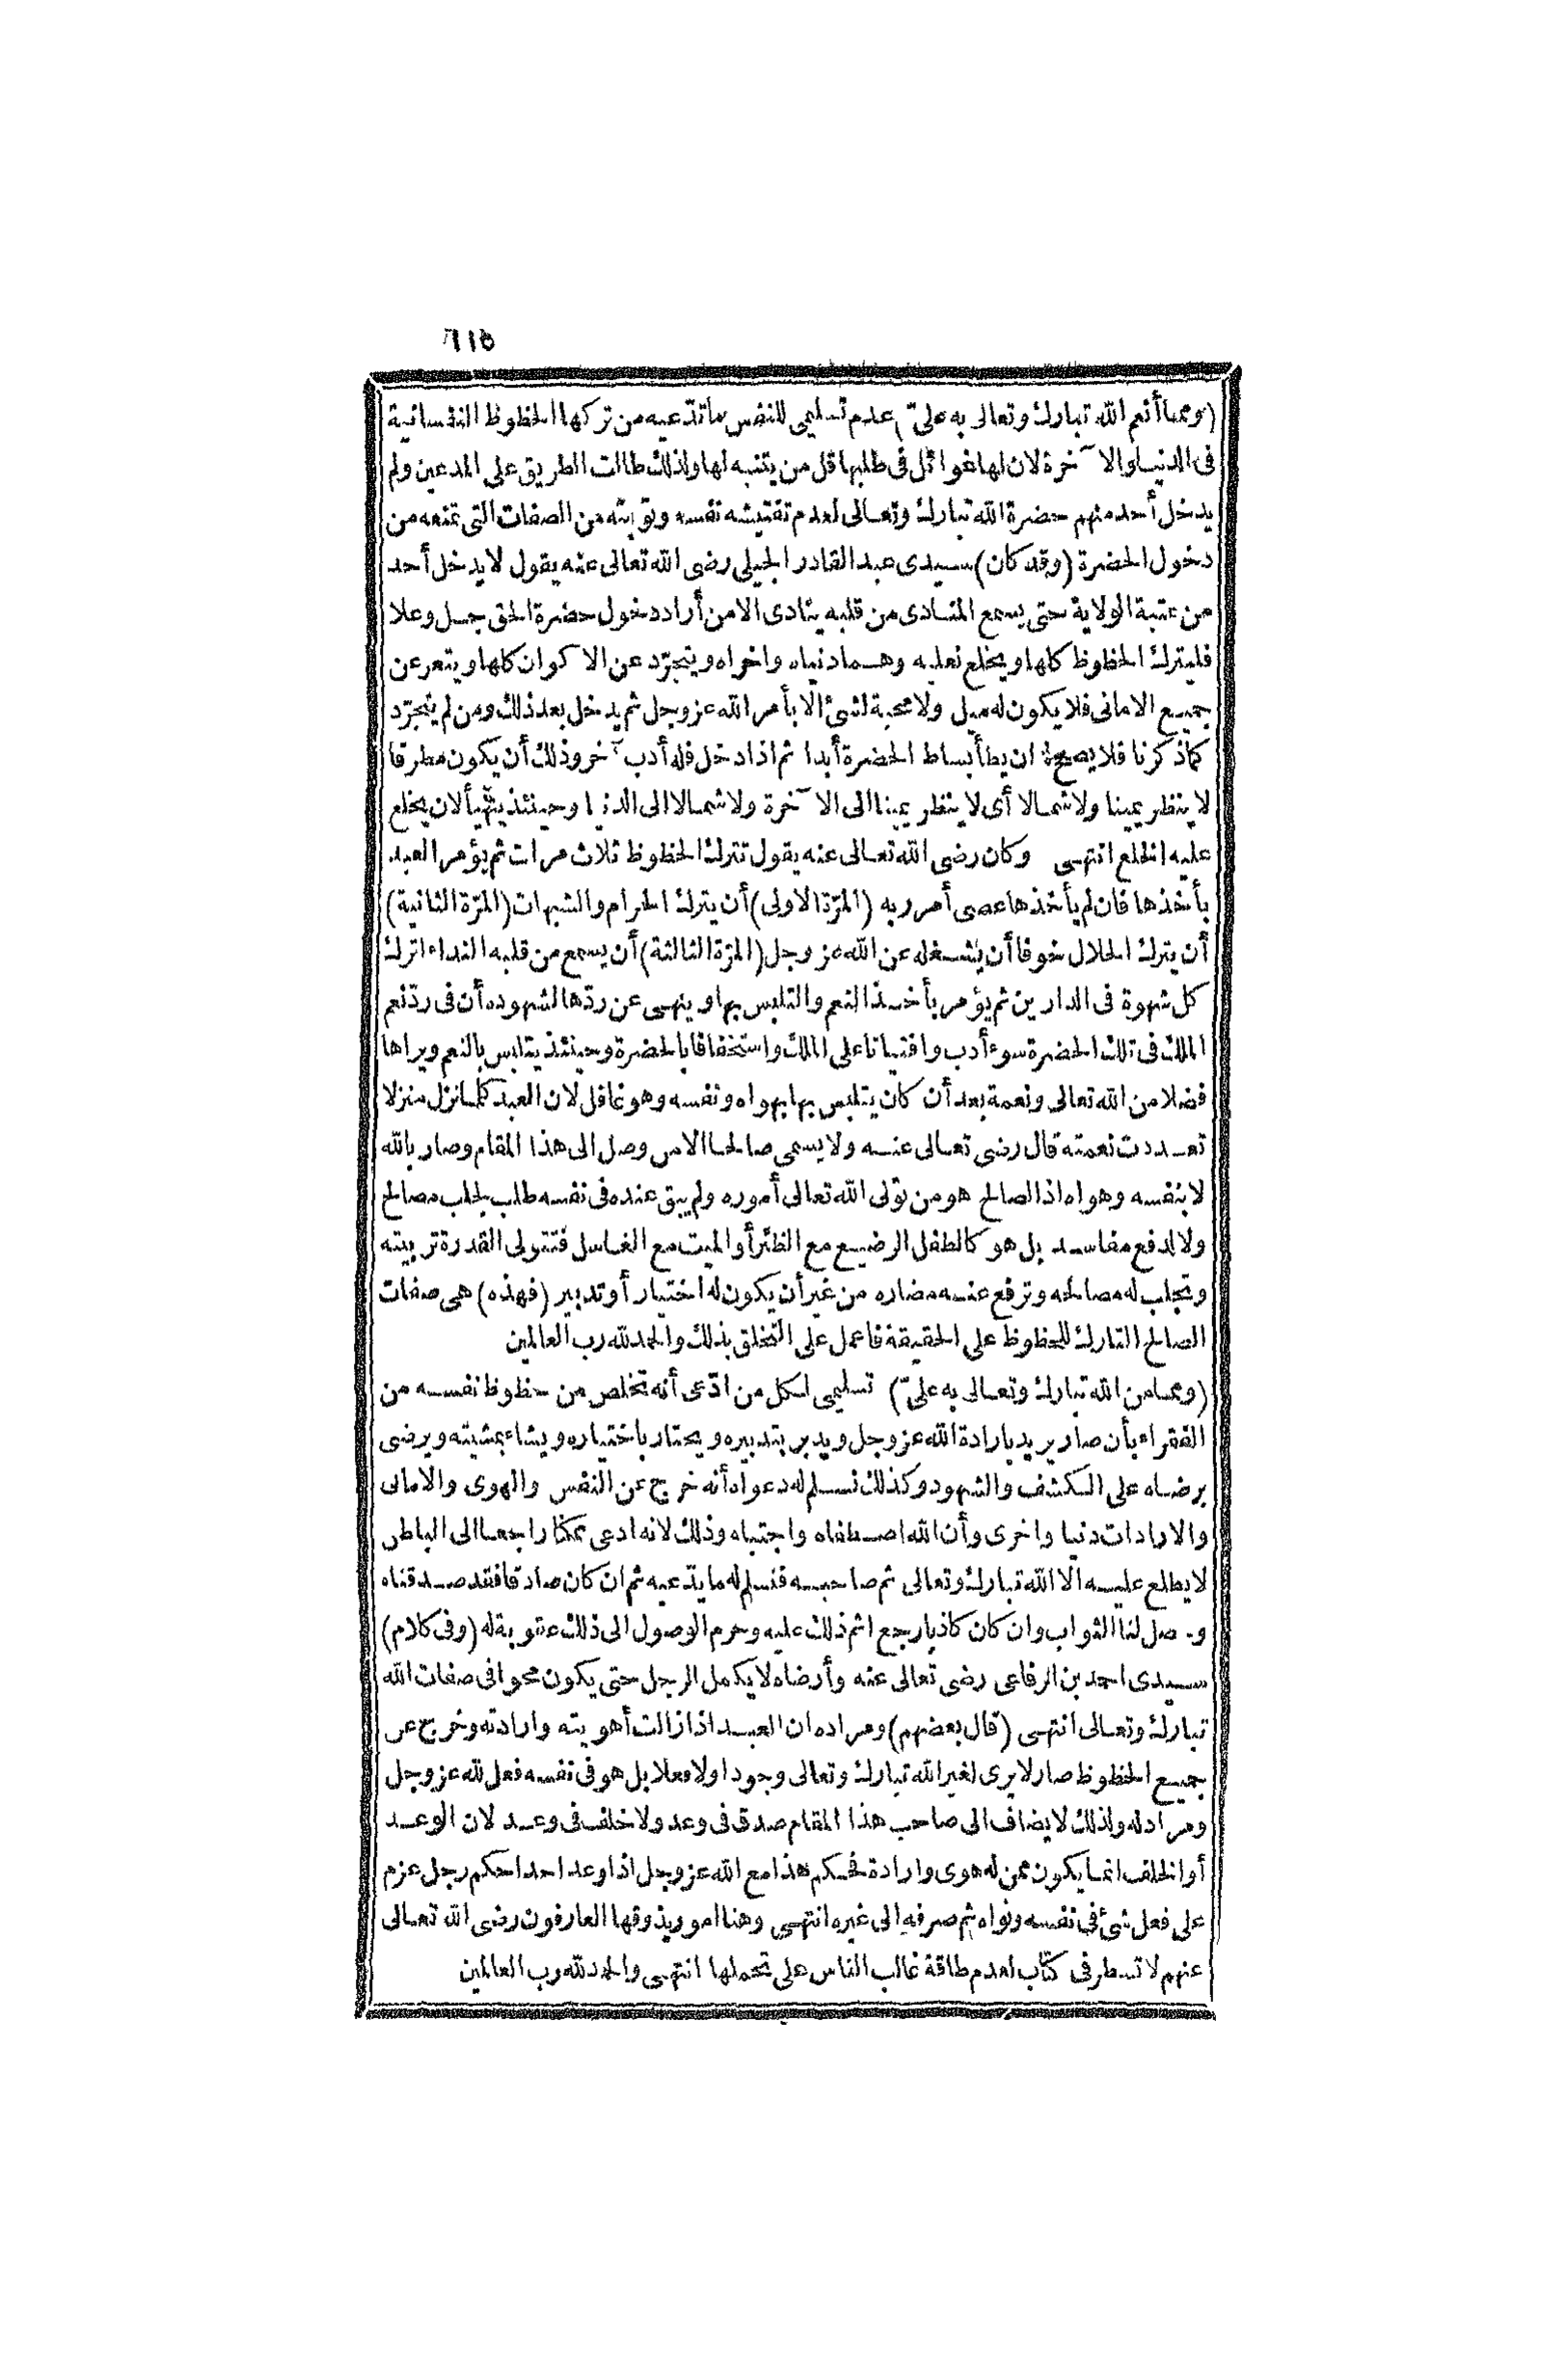 (ومما أنعم الله تبارك وتعالى به علىّ) عدم تسليمى للنفس ما تدّعيه من تركها الحظوظ النفسانية
فى الدنيا والآخرة لان لها غوائل فى طلبها قل من يتنبه لها ولذلك طالت الطريق على المدعين ولم
يدخل أحد منهم حضرة الله تبارك وتعالى لعدم تفتيشه نفسه وتوبته من الصفات التى تمنعه من
دخول الحضرة (وقد كان) سيدى عبد القادر الجيلى رضى الله تعالى عنه يقول لا يدخل أحد
من عتبة الولاية حتى يسمع المنادى من قلبه ينادى الا من أراد دخول حضرة الحق جل وعلا
فليترك الحظوظ كلها ويخلع نعليه وهما دنياه واخراه ويتجرّد عن الاكوان كلها ويتعر عن
جميع الامانى فلا يكون له ميل ولا محبة لشئ الا بأمر الله عز وجل ثم يدخل بعد ذلك ومن لم يتجرّد
كما ذكرنا فلا يصح له ان يطأ بساط الحضرة أبدا ثم اذا دخل فله أدب آخر وذلك أن يكون مطرقا
لا ينظر يمينا ولا شمالا أى لا ينظر يمينا الى الآخرة ولا شمالا الى الدنيا وحينئذ يتهيأ لان يخلع
عليه الخلع انتهى وكان رضى الله تعالى عنه يقول تترك الحظوظ ثلاث مرات ثم يؤمر العبد
بأخذها فان لم يأخذها عصى أمر ربه (المرّة الاولى) أن يترك الحرام والشبهات (المرّة الثانية)
أن يترك الحلال خوفا أن يشغله عن الله عز وجل (المرّة الثالثة) أن يسمع من قلبه النداء اترك
كل شهوة فى الدارين ثم يؤمر بأخذ النعم والتلبس بها وينهى عن ردّها لشهوده أن فى ردّ نعم
الملك فى تلك الحضرة سوء أدب وافتياتا على الملك واستخفافا بالحضرة وحينئذ يتلبس بالنعم ويراها
فضلا من الله تعالى ونعمة بعد أن كان يتلبس بها بهواه ونفسه وهو غافل لان العبد كلما نزل منزلا
تعددت نعمته قال رضى تعالى عنه ولا يسمى صالحا الا من وصل الى هذا المقام وصار بالله
لا بنفسه وهواه اذ الصالح هو من تولى الله تعالى أموره ولم يبق عنده فى نفسه طلب لجلب مصالح
ولا لدفع مفاسد بل هو كالطفل الرضيع مع الظئر أو الميت مع الغاسل فتتولى القدرة تربيته
وتجلب له مصالحه وترفع عنه مضاره من غير أن يكون له اختيار أو تدبير (فهذه) هى صفات
الصالح التارك للحظوظ على الحقيقة فاعمل على التخلق بذلك والحمد لله رب العالمين
(ومما من الله تبارك وتعالى به علىّ) تسليمى لكل من ادّعى أنه تخلص من حظوظ نفسه من
الفقراء بأن صار يريد بارادة الله عز وجل ويدبر بتدبيره ويختار باختياره ويشاء بمشيئته ويرضى
برضاه على الكشف والشهود وكذلك نسلم له دعواه أنه خرج عن النفس والهوى والامانى
والارادات دنيا واخرى وأن الله اصطفاه واجتباه وذلك لانه ادعى ممكنا راجعا الى الباطن
لا يطلع عليه الا الله تبارك وتعالى ثم صاحبه فنسلم له ما يدّعيه ثم ان كان صادقا فقد صدقناه
وحصل لنا الثواب وان كان كاذبا رجع اثم ذلك عليه وحرم الوصول الى ذلك عقوبة له (وفى كلام)
سيدى احمد بن الرفاعى رضى تعالى عنه وأرضاه لا يكمل الرجل حتى يكون محوا فى صفات الله
تبارك وتعالى انتهى (قال بعضهم) ومراده ان العبد اذا زالت أهويته وارادته وخرج عن
جميع الحظوظ صار لا يرى لغير الله تبارك وتعالى وجودا ولا فعلا بل هو فى نفسه فعل لله عز وجل
ومراد له ولذلك لا يضاف الى صاحب هذا المقام صدق فى وعد ولا خلف فى وعد لان الوعد
أو الخلف انما يكون ممن له هوى وارادة فحكم هذا مع الله عز وجل اذا وعد احدا حكم رجل عزم
على فعل شئ فى نفسه ونواه ثم صرفه الى غيره انتهى وهنا امور يذوقها العارفون رضى الله تعالى
عنهم لا تسطر فى كتاب لعدم طاقة غالب الناس على تحملها انتهى والحمد لله رب العالمين